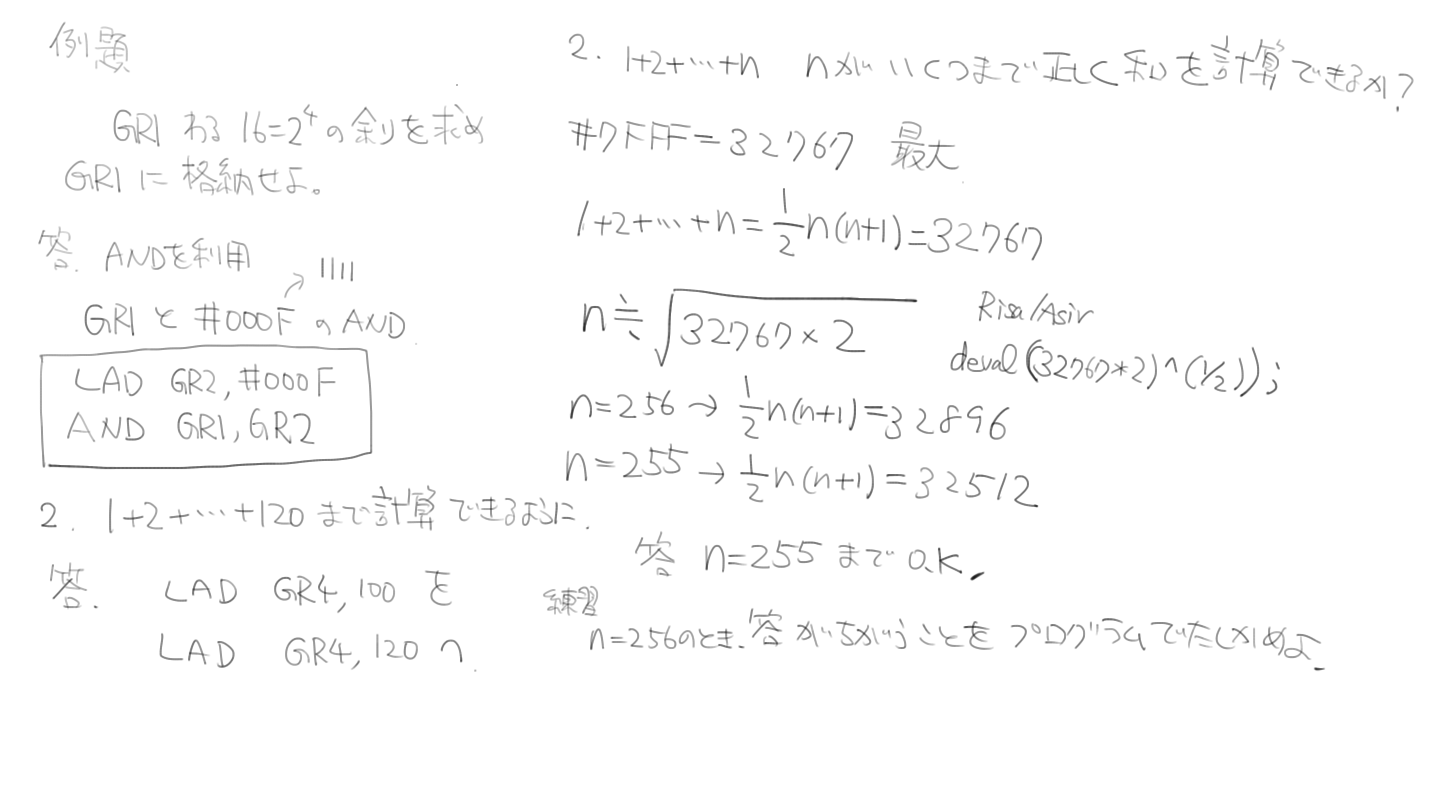 例題
GR1 わる 16=2^4 の余りを求め
GR1に格納せよ。
答. ANDを利用
↗ 1111
GR1 と #000F の AND
LAD GR2, #000F
AND GR1, GR2
2. 1+2+…+120 まで計算できるように.
答. LAD GR4, 100 を
LAD GR4, 120 へ
2. 1+2+…+n nがいくつまで正しく和を計算できるか?
#7FFF=32767 最大
1+2+…+n=1/2n(n+1)=32767
n≒√32767×2
Risa/Asir
deval((32767*2)^(1/2));
n=256→1/2n(n+1)=32896
n=255→1/2n(n+1)=32512
答 n=255 まで O.K.
練習
n=256のとき.答がちがうことをプログラムでたしかめよ.